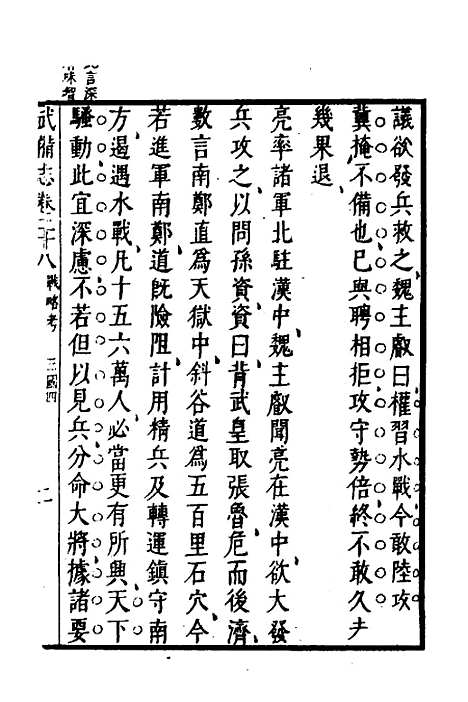 議欲發兵救之魏主叡曰權習水戰今敢陸攻
冀掩不備也已與聘相拒攻守勢倍終不敢久未
幾果退
亮率諸軍北駐漢中魏主叡聞亮在漢中欲大發
兵攻之以問孫資資曰昔武皇取張魯危而後濟
數言南鄭直為天獄中斜谷道為五百里石穴今
若進軍南鄭道旣險阻計用精兵及轉運鎮守南
方遏遇水戰凡十五六萬人必當更有所興天下
騷動此宜深慮不若但以見兵分命大將據諸要
武備志卷二十八 戰略考 三國四
言深
味智